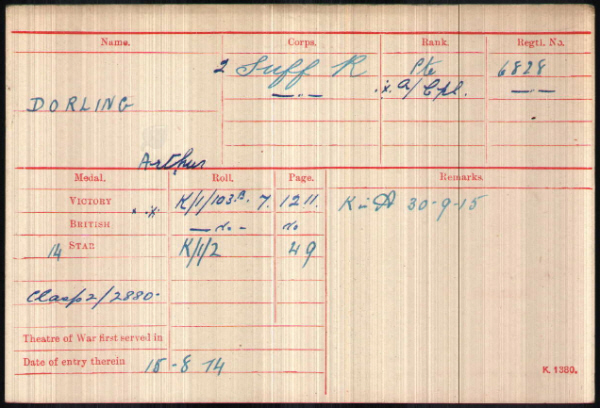 Name. Corps. Rank. Regtl. No.
2 Suff R Pte 6828
—„— ·x· A/Cpl. —„—
DORLING
Arthur
Medal. Roll. Page. Remarks.
VICTORY x ·x· K/1/103.B. 7. 1211. K in A 30-9-15
BRITISH — do - do
14 STAR K/1/2 49
Clasp 2/2880.
Theatre of War first served in
Date of entry therein 15-8-14
K. 1380.